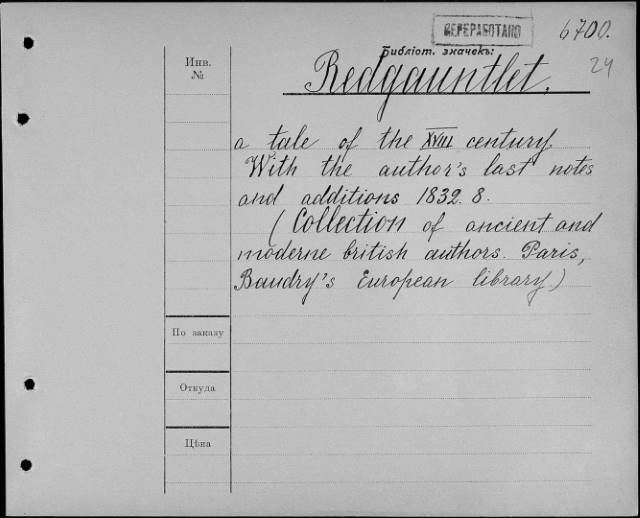 ПЕРЕРАБОТАНО
6700.
24
Библіот. значекъ:
Инв.
№
Redgauntlet.
a tale of the XVIII century.
With the author's last notes
and additions 1832. 8.
(Collection of ancient and
moderne british authors. Paris,
Baudry's European library)
По заказу
Откуда
Цѣна